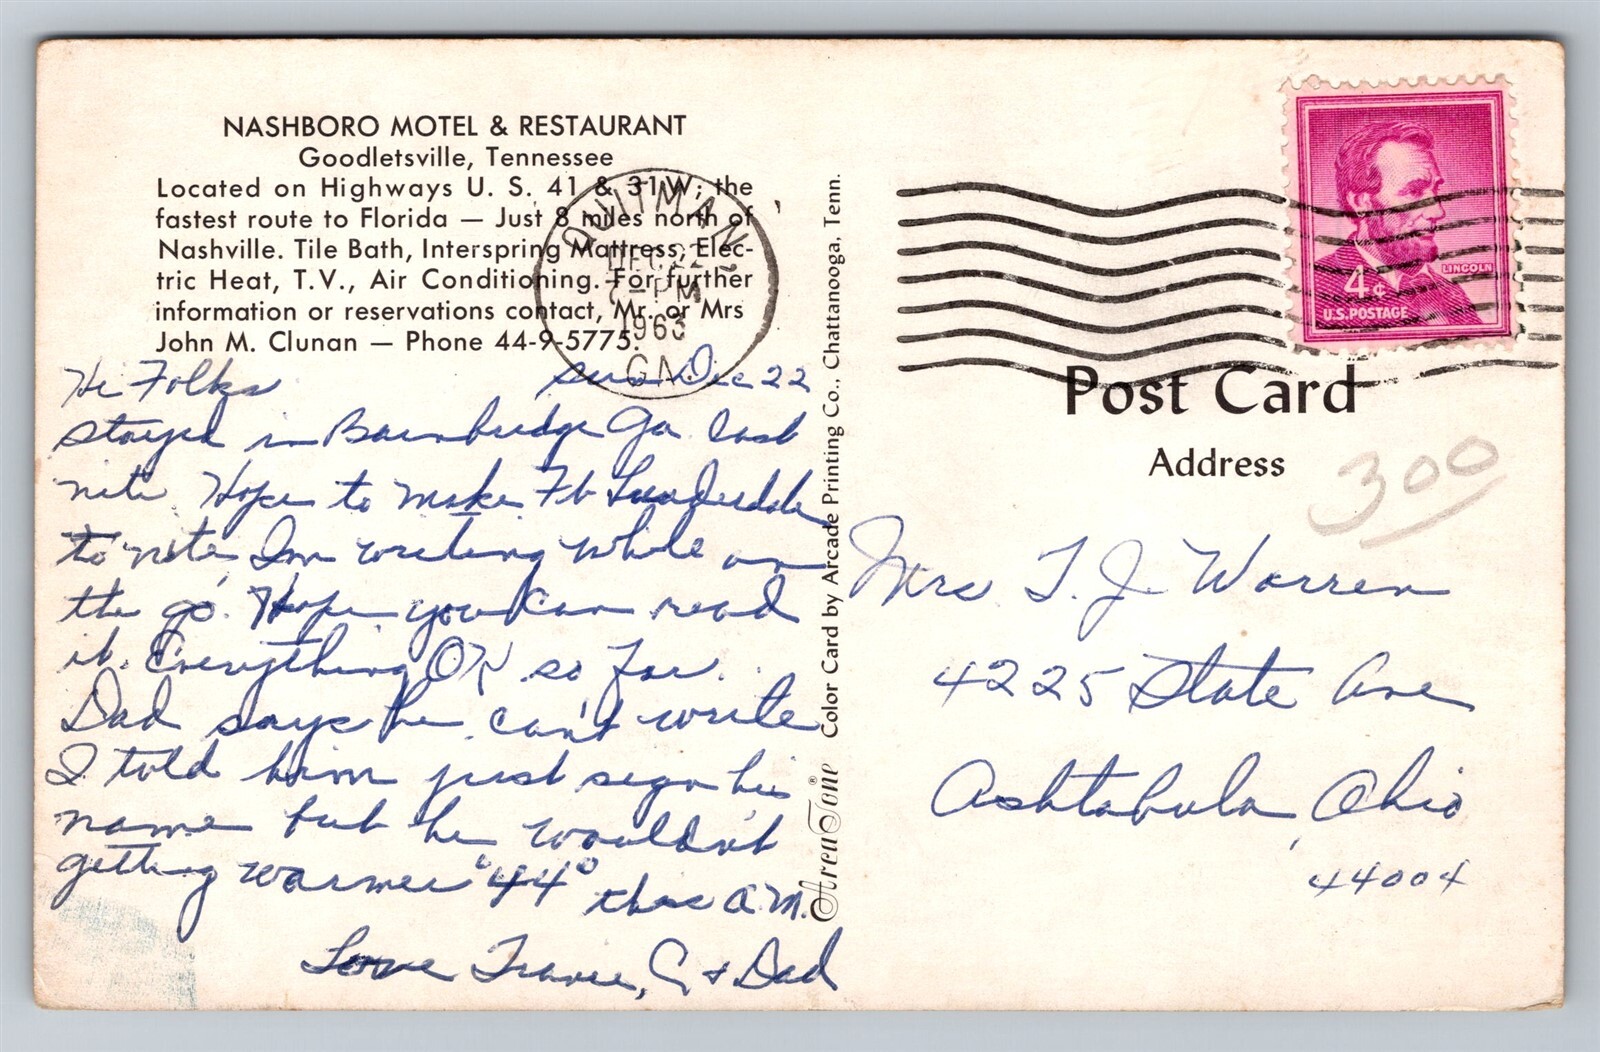 NASHBORO MOTEL & RESTAURANT
Goodletsville, Tennessee
Located on Highways U. S. 41 & 31W; the
fastest route to Florida — Just 8 miles north of
Nashville. Tile Bath, Interspring Mattress, Elec-
tric Heat, T.V., Air Conditioning. For further
information or reservations contact, Mr. or Mrs
John M. Clunan — Phone 44-9-5775.
QUITMAN
DEC 22
PM
1963
GA.
Hi Folks Sun Dec 22
stayed in Bainbridge Ga last
nite Hope to make Ft Lauderdale
to nite, Im writing while on
the go. Hope you can read
it. Everything OK so far.
Dad says he can't write
I told him just sign his
name but he wouldn't
getting warmer "44° this A.M.
Love C & Dad
AreaTone® Color Card by Arcade Printing Co., Chattanooga, Tenn.
LINCOLN
4¢
U.S.POSTAGE
Post Card
Address
300
Mrs T. J. Warren
4225 State Ave
Ashtabula, Ohio
44004